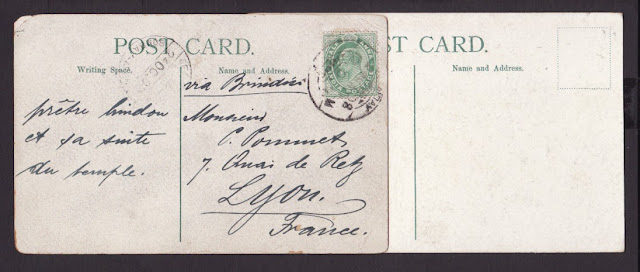 POST CARD.
Writing Space.
Name and Address.
via Brindisi
prêtre hindou
et sa suite
du temple.
Monsieur
C. Pommet
7. Quai de Retz
Lyon.
France.
ST CARD.
Name and Address.